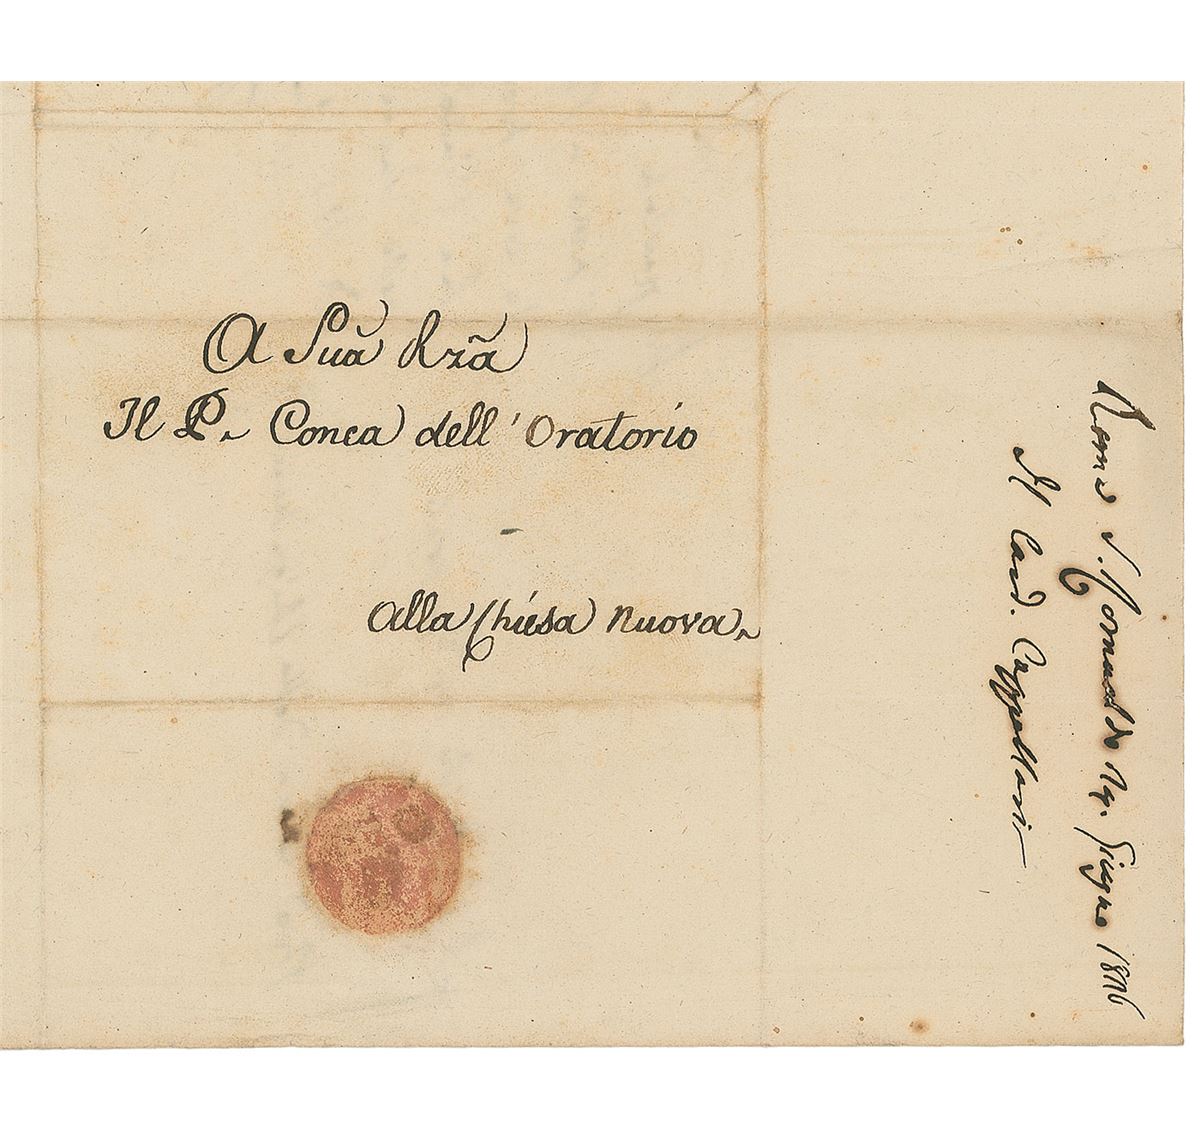 A Suã Rzã
Il P. Conca dell' Oratorio
Alla Chiesa Nuova.
Roma S. Romualdo Giugno
Il Card. Cappellari